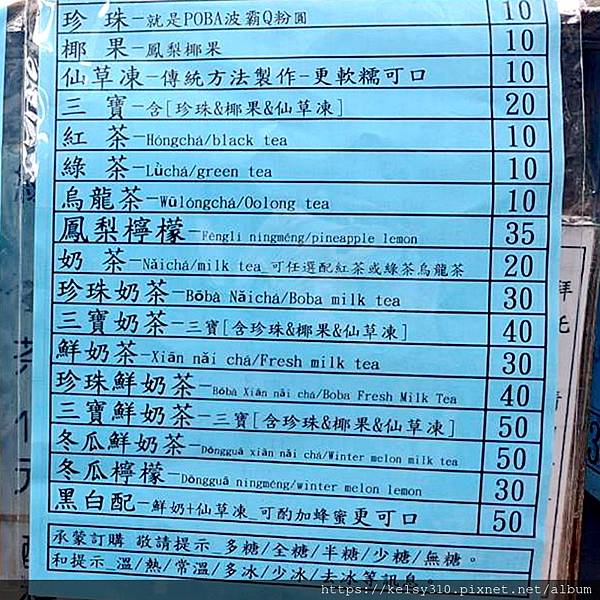 珍 珠-就是POBA波霸Q粉圓 10
椰 果-鳳梨椰果 10
仙草凍-傳統方法製作-更軟糯可口 10
三 寶-含[珍珠&椰果&仙草凍] 20
紅 茶-Hóngchá/black tea 10
綠 茶-Lǜchá/green tea 10
烏龍茶-Wūlóngchá/Oolong tea 10
鳳梨檸檬-Fènglí níngméng/pineapple lemon 35
奶 茶-Nǎichá/milk tea_可任選配紅茶或綠茶烏龍茶 20
珍珠奶茶-Bōbà Nǎichá/Boba milk tea 30
三寶奶茶-三寶[含珍珠&椰果&仙草凍] 40
鮮奶茶-Xiān nǎi chá/Fresh milk tea 30
珍珠鮮奶茶-Bōbà Xiān nǎi chá/Boba Fresh Milk Tea 40
三寶鮮奶茶-三寶[含珍珠&椰果&仙草凍] 50
冬瓜鮮奶茶-Dōngguā xiān nǎi chá/Winter melon milk tea 50
冬瓜檸檬-Dōngguā níngméng/winter melon lemon 30
黑白配-鮮奶+仙草凍_可酌加蜂蜜更可口 50
承蒙訂購 敬請提示_多糖/全糖/半糖/少糖/無糖。
和提示_溫/熱/常溫/多冰/少冰/去冰等訊息。
拜
托
https://kelsy310.pixnet.net/album